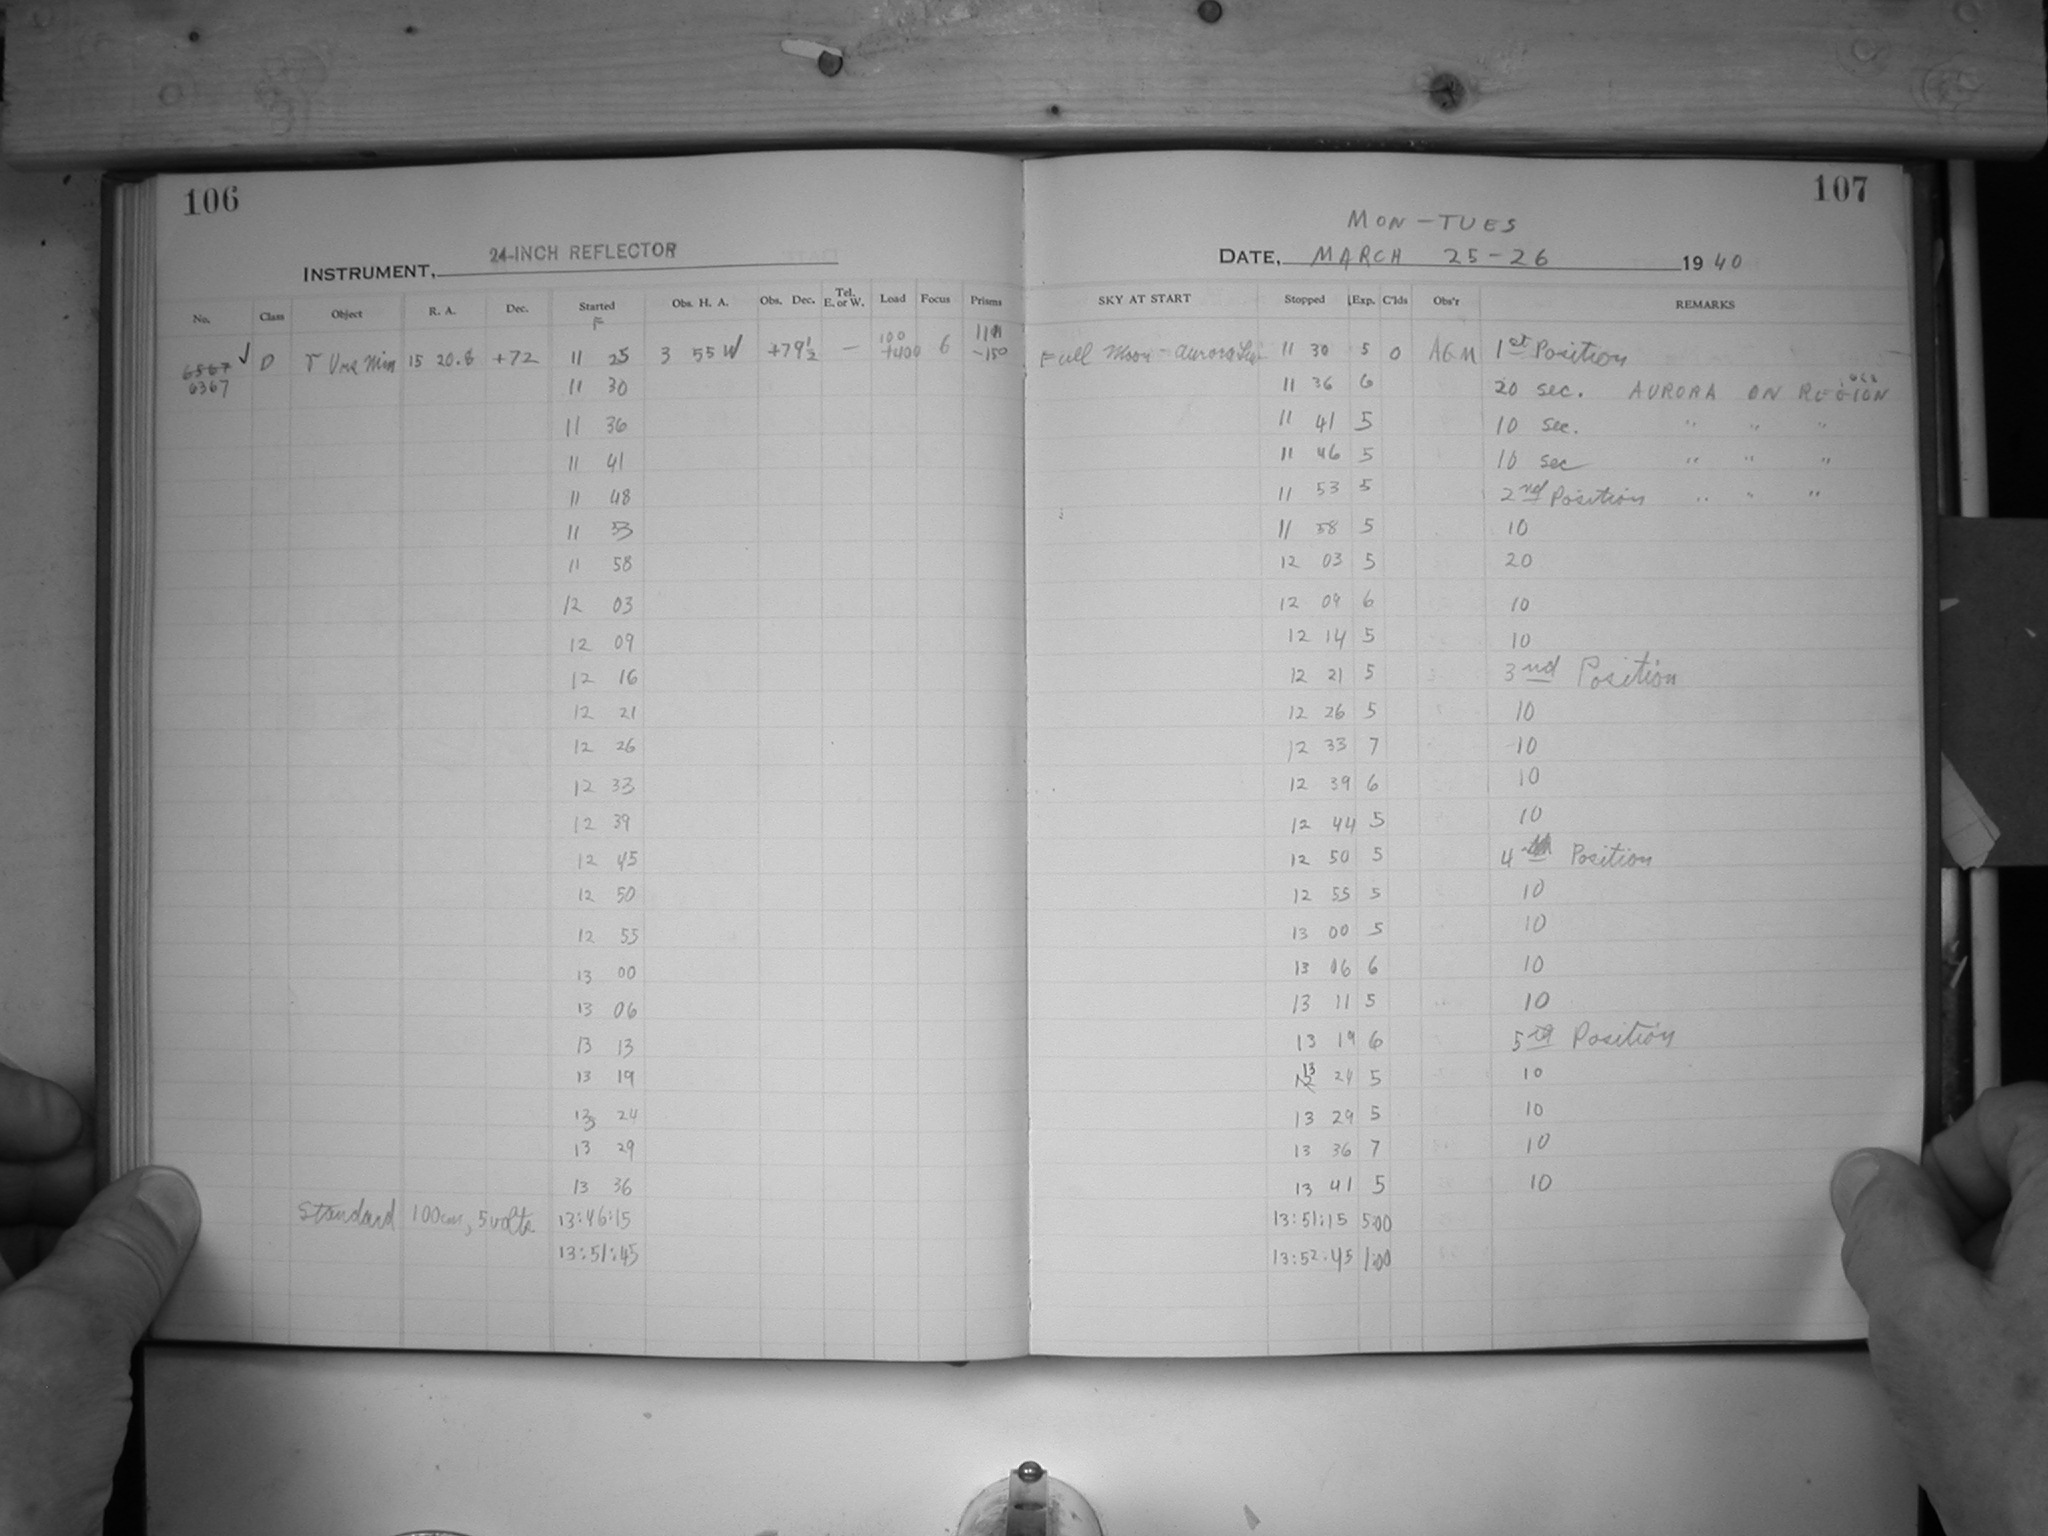 106
107
MON-TUES
24-INCH REFLECTOR
INSTRUMENT,
DATE, MARCH 25-26 1940
No. Class Object R. A. Dec. Started Obs. H. A. Obs. Dec. Tel. E. or W. Load Focus Prisms SKY AT START Stopped Exp. C'lds Obs'r REMARKS
6567 ✓ D Urs Min 15 20.8 +72 11 25 3 55 W +79½ — 100 +400 6 -150 Full Moon - aurora 11 30 5 0 AGM 1st Position
6367 11 30 11 36 6 20 sec. AURORA ON REGION
11 36 11 41 5 10 sec. " " "
11 41 11 46 5 10 sec " " "
11 48 11 53 5 2nd Position " " "
11 53 11 58 5 10
11 58 12 03 5 20
12 03 12 09 6 10
12 09 12 14 5 10
12 16 12 21 5 3nd Position
12 21 12 26 5 10
12 26 12 33 7 10
12 33 12 39 6 10
12 39 12 44 5 10
12 45 12 50 5 4th Position
12 50 12 55 5 10
12 55 13 00 5 10
13 00 13 06 6 10
13 06 13 11 5 10
13 13 13 19 6 5th Position
13 19 13 24 5 10
13 24 13 29 5 10
13 29 13 36 7 10
13 36 13 41 5 10
Standard 100cm, 5 volts 13:46:15 13:51:15 5:00
13:51:45 13:52:45 1:00